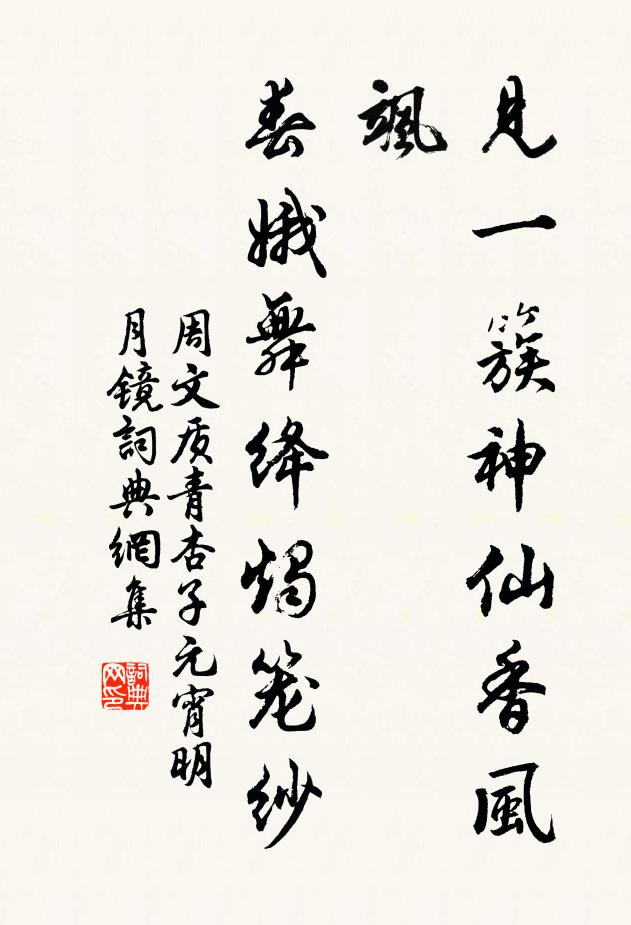 見一簇神仙香風
颯
春娥舞绛燭笼紗
周文质青杏子元宵明
月鏡詞典網集
詞典
网印